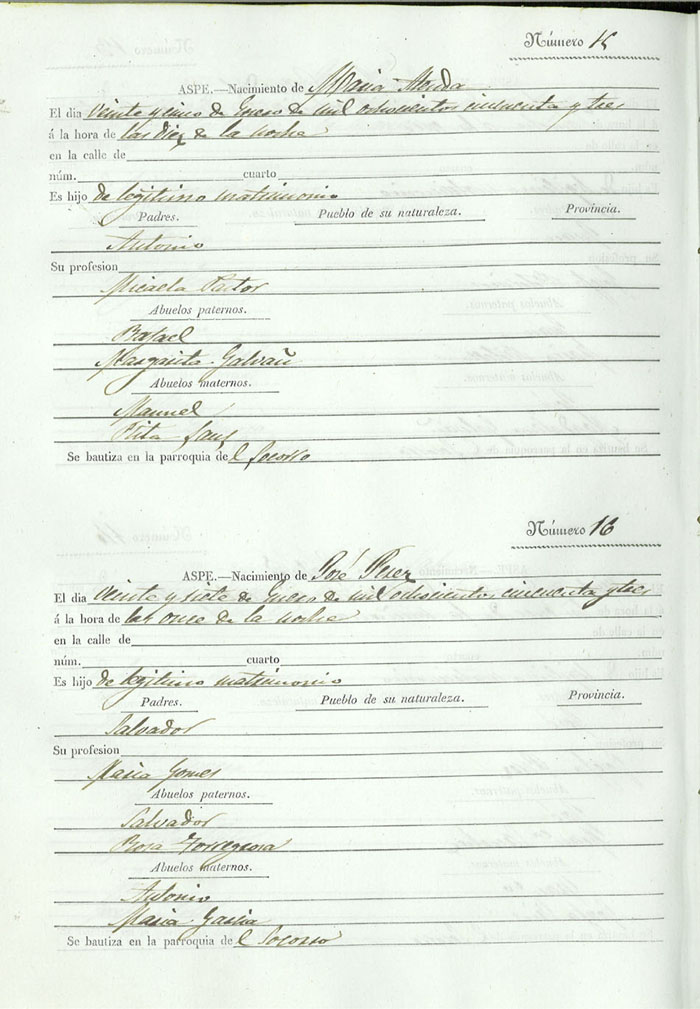 Número 15
ASPE.—Nacimiento de Maria
El dia veinte y cinco de enero de mil ochosientos cincuenta y tres
á la hora de las diez de la noche
en la calle de
núm. cuarto
Es hijo de legitimo matrimonio
Padres. Pueblo de su naturaleza. Provincia.
Antonio
Su profesion
Micaela Pastor
Abuelos paternos.
Rafael
Margarita Galvañ
Abuelos maternos.
Manuel
Rita
Se bautiza en la parroquia del Socorro
Número 16
ASPE.—Nacimiento de José Perez
El dia veinte y siete de enero de mil ochosientos cincuenta y tres
á la hora de las once de la noche
en la calle de
núm. cuarto
Es hijo de legitimo matrimonio
Padres. Pueblo de su naturaleza. Provincia.
Salvador
Su profesion
Maria Gomes
Abuelos paternos.
Salvador
Rosa Torregrosa
Abuelos maternos.
Antonio
Maria Garcia
Se bautiza en la parroquia del Socorro